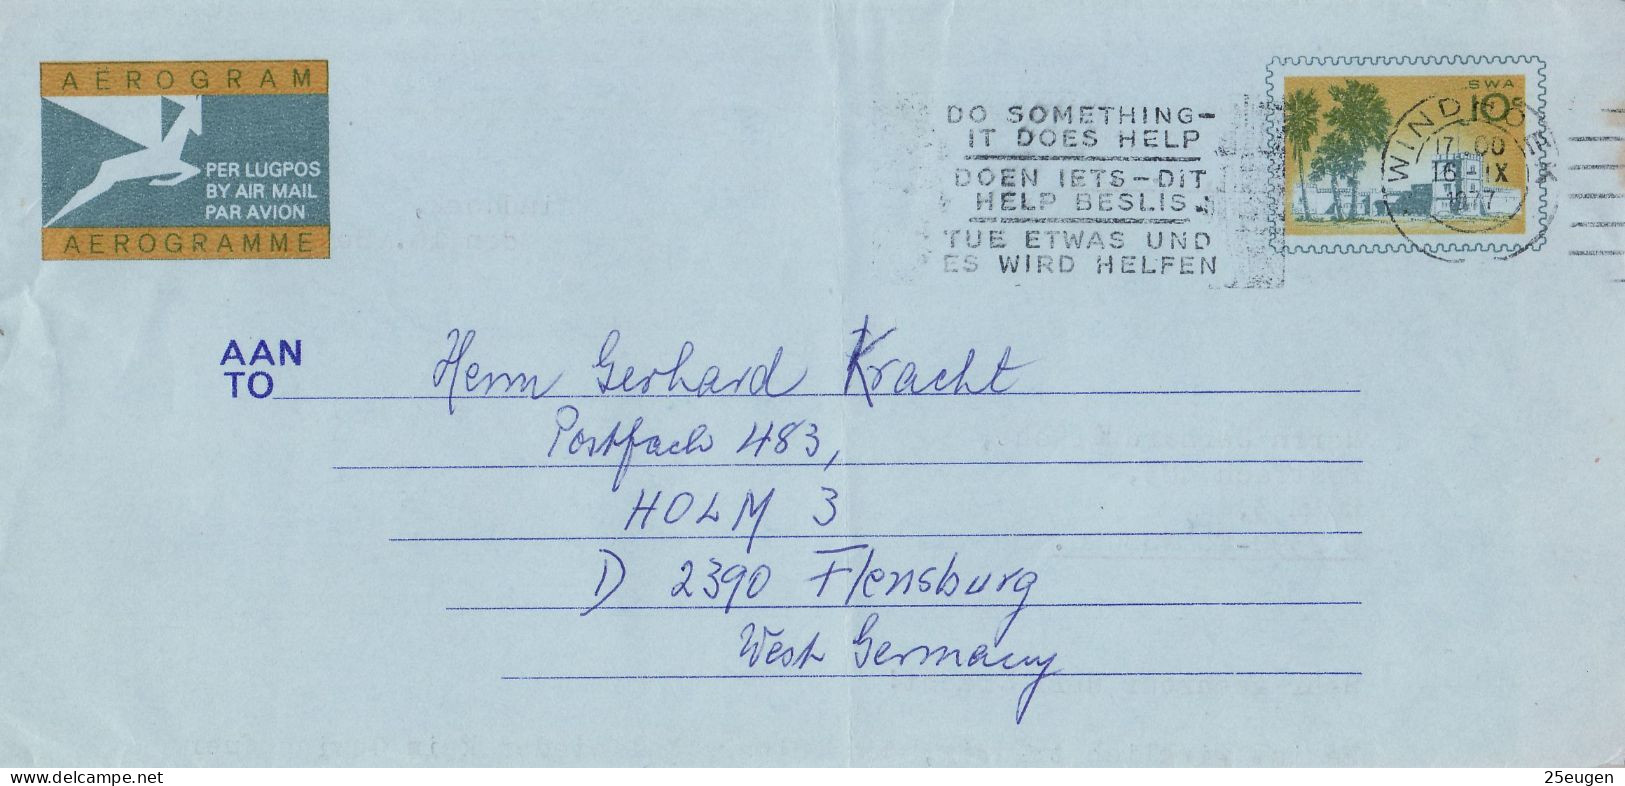 AËROGRAM
PER LUGPOS
BY AIR MAIL
PAR AVION
AEROGRAMME
DO SOMETHING-
IT DOES HELP
DOEN IETS-DIT
HELP BESLIS.
TUE ETWAS UND
ES WIRD HELFEN
SWA
10c
17.00
16 -IX
1977
AAN
TO
Herrn Gerhard Kracht
Postfach 483,
HOLM 3
D 2390 Flensburg
West Germany
www.delcampe.net
25eugen